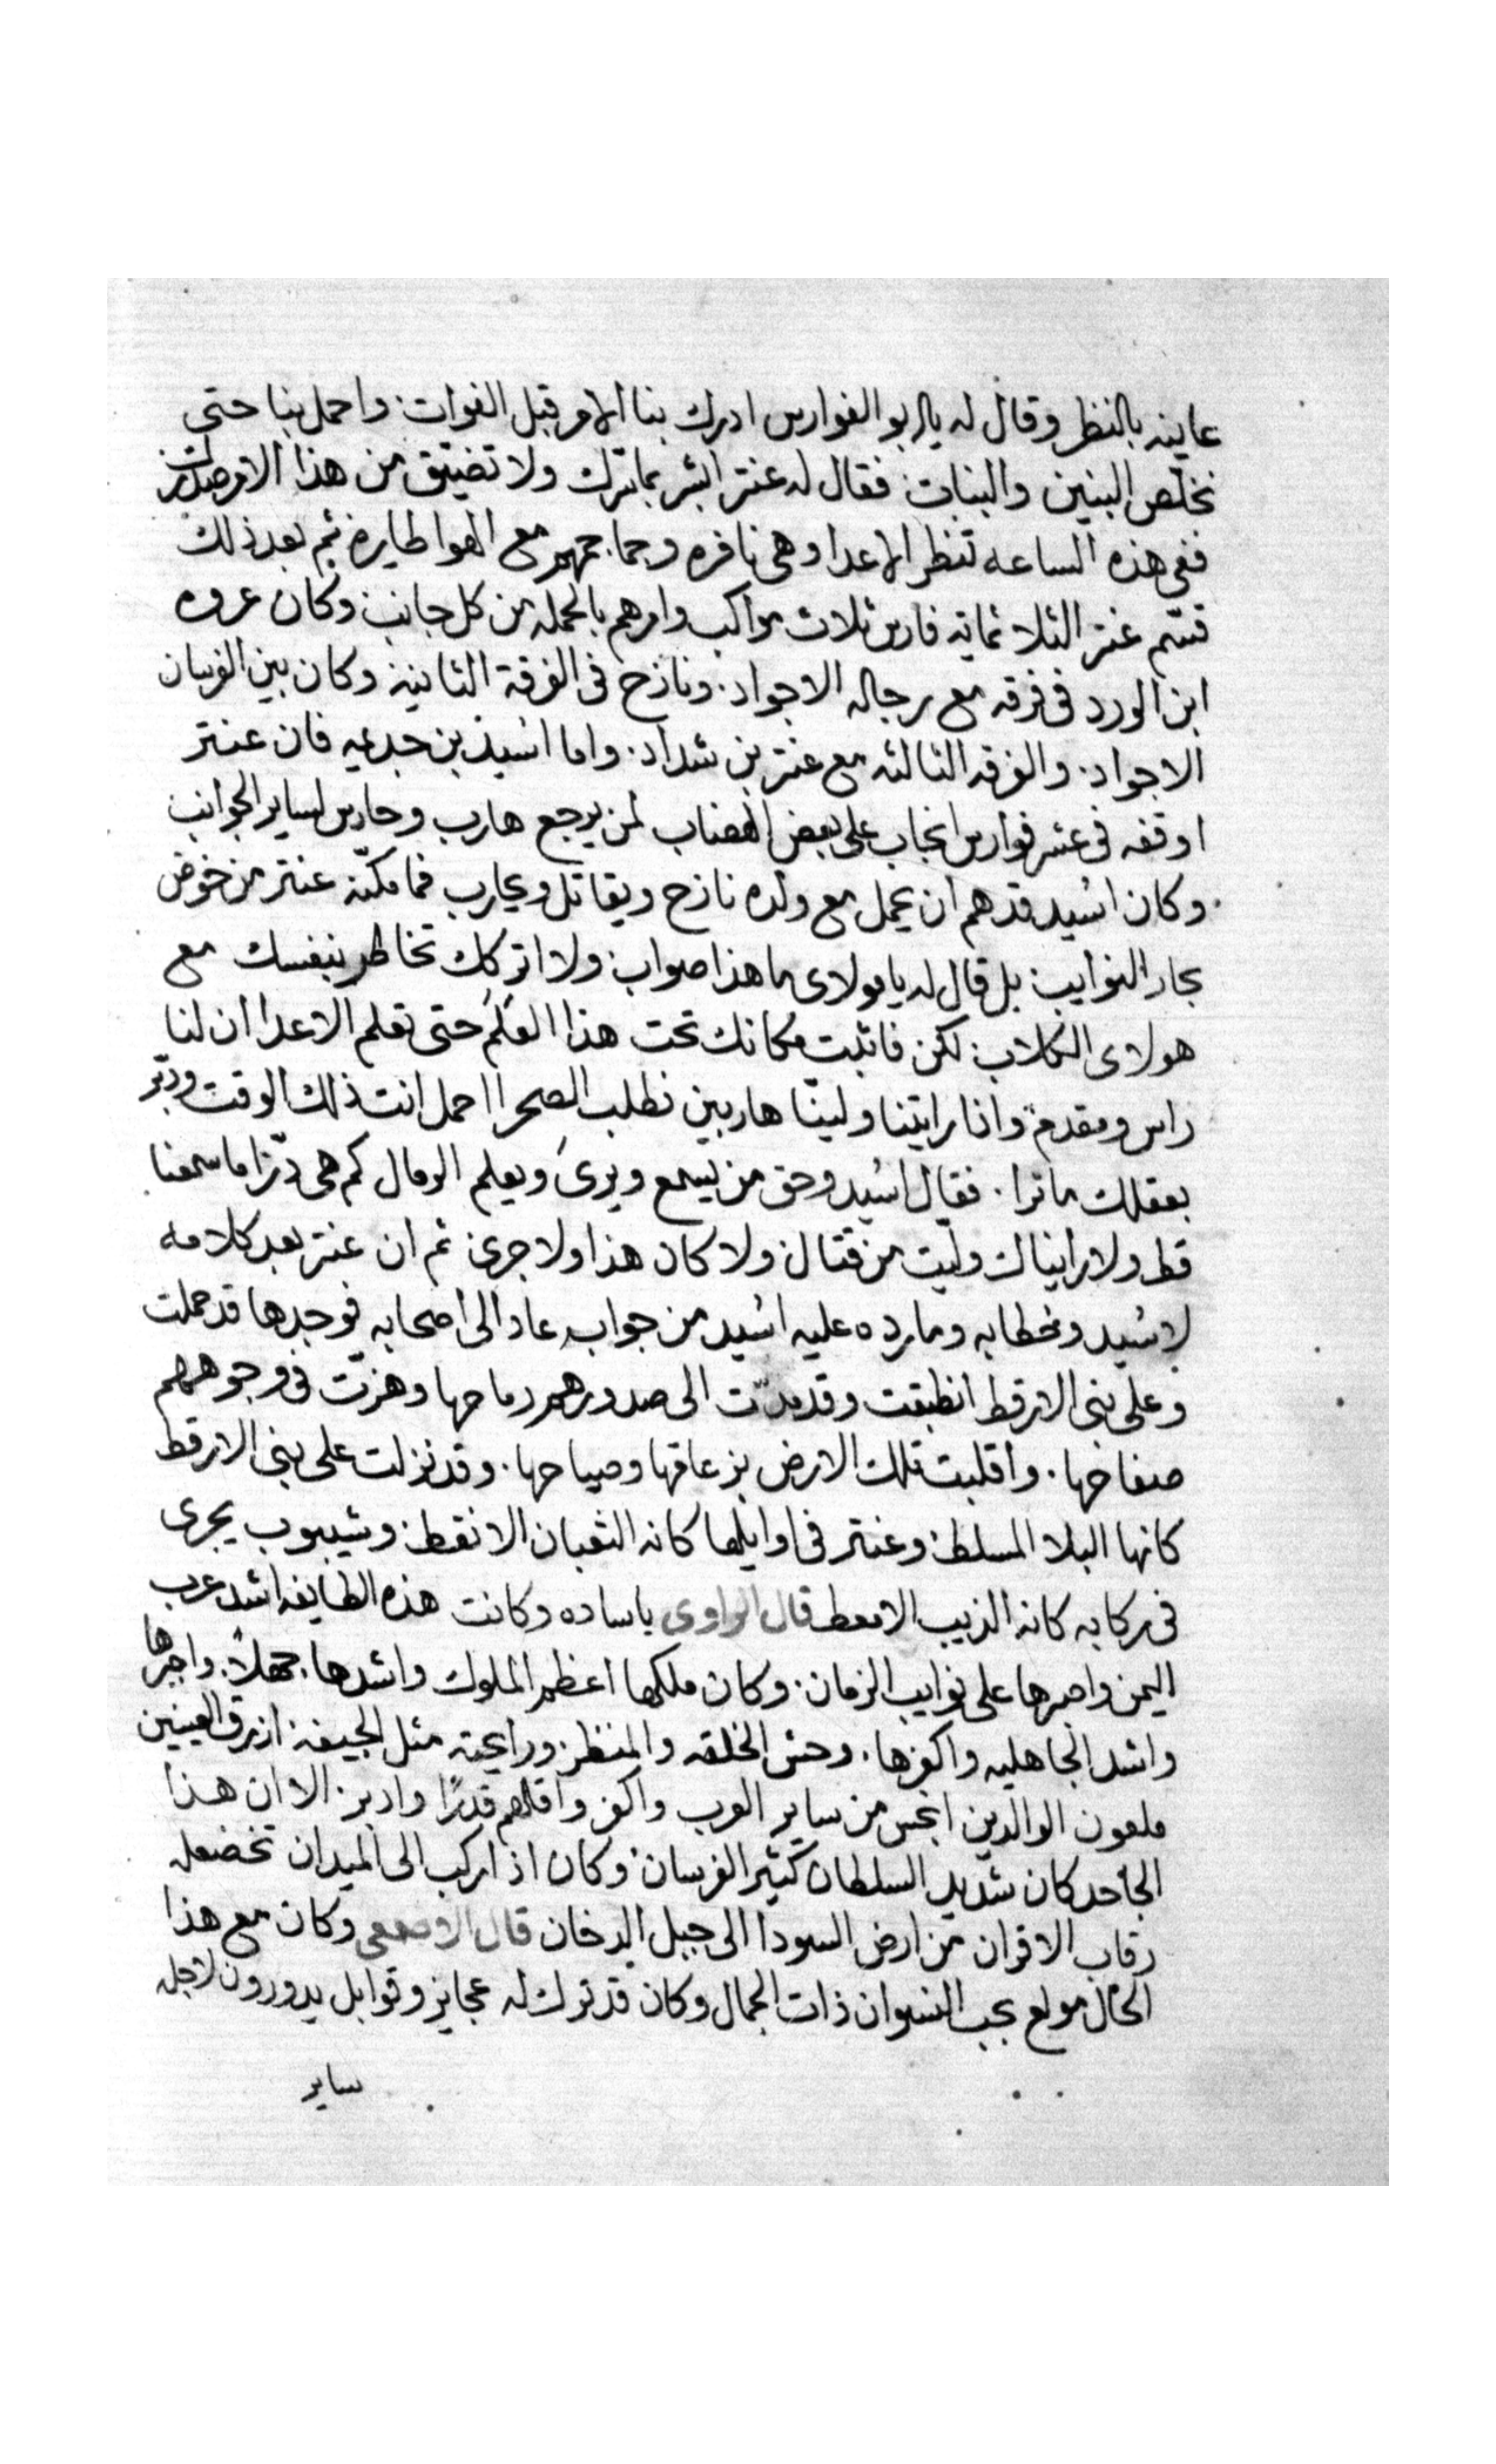 عاينه بالنظر وقال له يا ابو الفوارس ادرك بنا الامر قبل الفوات واحمل بنا حتى
نخلّص البنين والبنات فقال له عنتر ابشر بما يسرك ولا تضيّق من هذا الامر صدرك
ففي هذه الساعه تنظر الاعدا وهي نافره وجماجمهم مع الهوا طايره ثم بعد ذلك
قسّم عنتر الثلاثمايه فارس ثلاث مواكب وامرهم بالحمله من كل جانب وكان عروه
ابن الورد في فرقه مع رجاله الاجواد. ونازح في الفرقة الثانية وكان بين الفرسان
الاجواد. والفرقه الثالثه مع عنتر بن شداد. واما اسيد بن جديمه فان عنتر
اوقفه في عشر فوارس انجاب على بعض الهضاب لمن يرجع هارب وحارس لساير الجوانب
وكان اسيد قد هم ان يحمل مع ولده نازح ويقاتل ويحارب فما مكّنه عنتر من خوض
بحار النوايب بل قال له يا مولاى ما هذا صواب ولا اتركك تخاطر بنفسك مع
هولاى الكلاب لكن فاثبت مكانك تحت هذا العَلَم حتى تعلم الاعدا ان لنا
راس ومقدم وانا رايتنا ولينّا هاربين نطلب الصحرا احمل انت ذلك الوقت ودبّر
بعقلك ما ترا. فقال اسيد وحق من يسمع ويرى ويعلم الرمال كم هي ذرّا ما سمعنا
قط ولا رايناك وليّت من قتال ولا كان هذا ولا جرى ثم ان عنتر بعد كلامه
لاسيد وخطابه وما رده عليه اسيد من جواب عاد الى اصحابه فوجدها قد حملت
وعلى بنى الارقط انطبقت وقد مدّت الى صدورهم رماحها وهزّت في وجوههم
صفاحها. واقلبت تلك الارض بزعاقها وصياحها. وقد نزلت على بنى الارقط
كانها البلا المسلط وعنتر في اوايلها كانه الثعبان الانقط وشيبوب يجرى
في ركابه كانه الذيب الامعط قال الراوى ياساده وكانت هذه الطايفه اشد عرب
اليمن واصبرها على نوايب الزمان. وكان ملكها اعظم الملوك واشدها جهلاً. واجبرها
واشد الجاهليه واكفرها. وحش الخلقه والمنظر ورايحته مثل الجيفه ازرق العينين
ملعون الوالدين انجس من ساير العرب واكفر واقلهم قدرًا وادبر الا ان هذا
الجاحد كان شديد السلطان كثير الفرسان وكان اذا ركب الى الميدان تخضع له
رقاب الاقران من ارض السودا الى جبل الدخان قال الاصمعى وكان مع هذا
الحال مولع بحب النسوان ذات الجمال وكان قد ترك له عجايز وقوابل يدورون لاجله
ساير